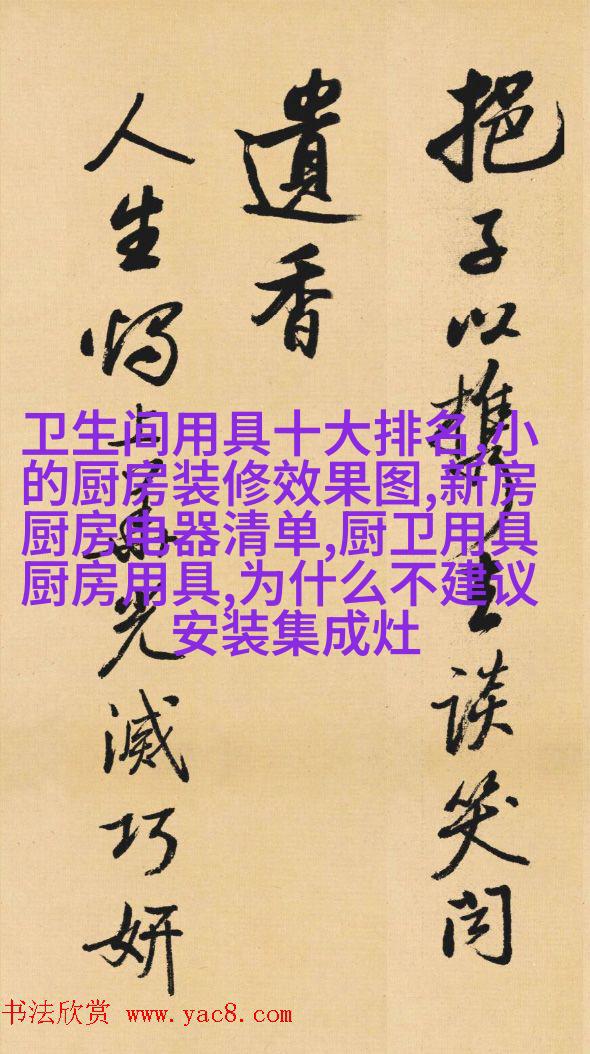 挹子以㩗生谈笑间
遗香
人生阅年华光灭巧妍
卫生间用具十大排名,小
的厨房装修效果图,新房
厨房电器清单,厨卫用具
厨房用具,为什么不建议
安装集成灶
书法欣赏 www.yac8.com